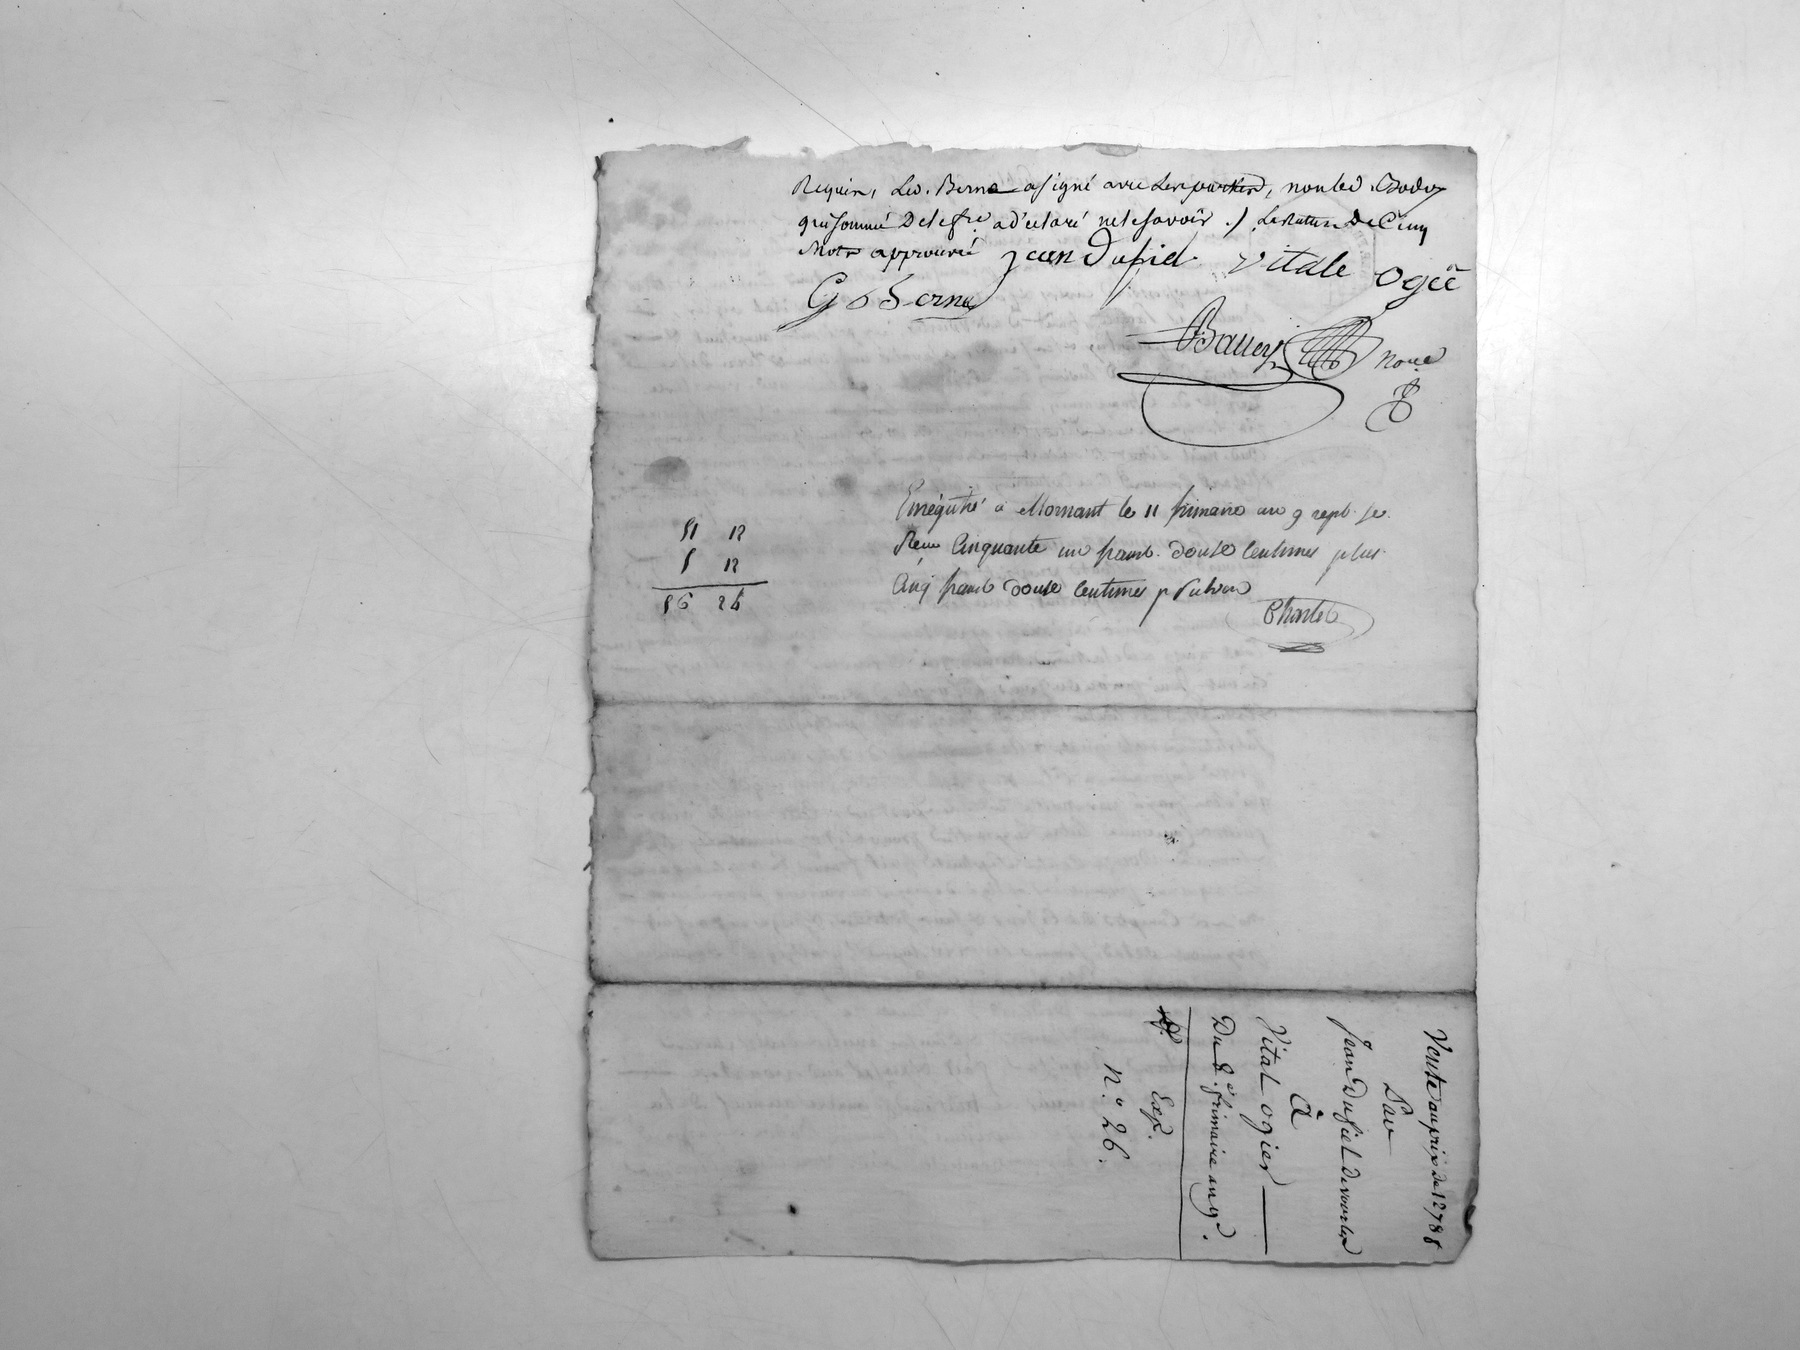 Requin, Led. Berne a signé avec les parties, non led. Bodoy
qui sommé De le fre. a d'eclaré ne le savoir ./. La Rature De Cinq
Mots approuvé jean Dufiel vitale ogié
G b Berne
Bauery Nore
Enrégistré a Mornant le 11 frimaire an 9 repl. fe.
Recu Cinquante un franc. douse Centimes plus
Cinq francs douse Centimes pr Subvon
Charlet
51 12
5 12
56 24
Vente au prix de 1278 f
Par
Jean Dufiel de vourles
à
Vital ogier
Du 8.e frimaire an 9e.
Exp.
N.o 26.